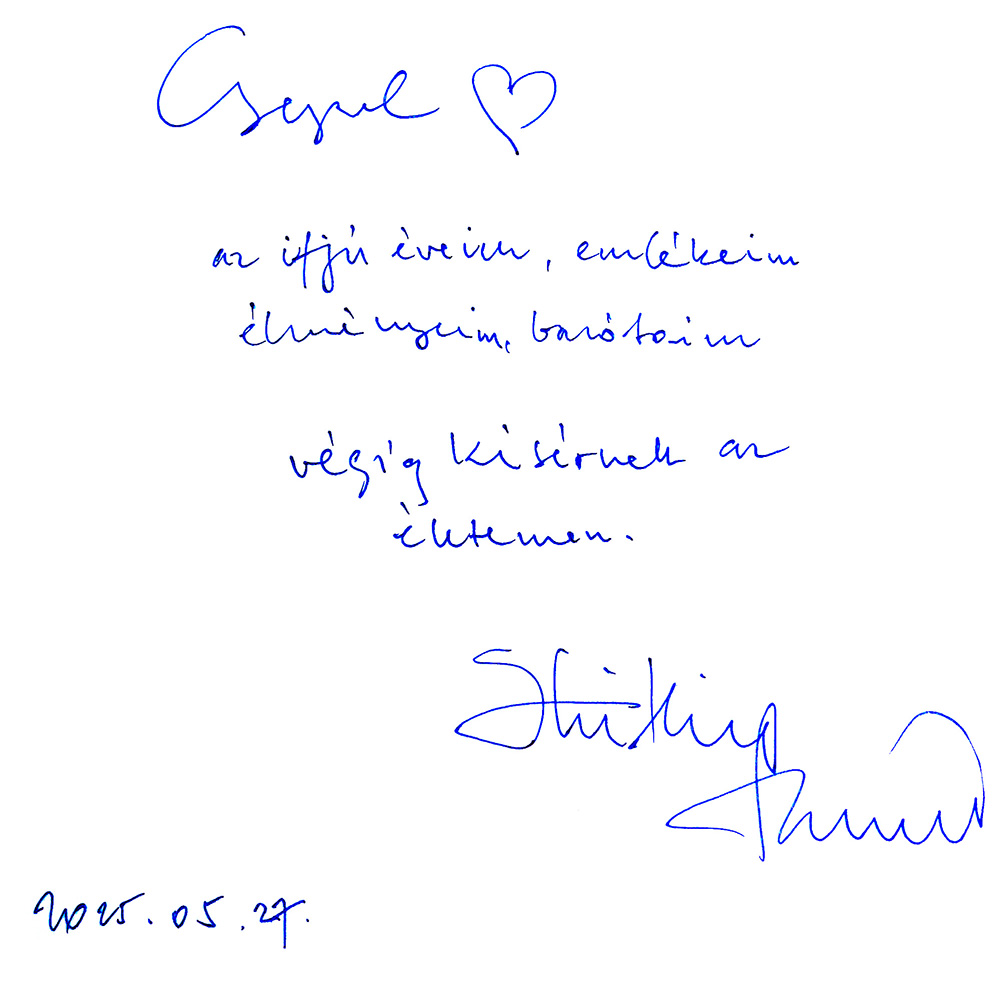 Csepel ♡
az ifjú éveim, emlékeim
élményeim, barátaim
végig kisérnek az
életemen.
2025.05.27.